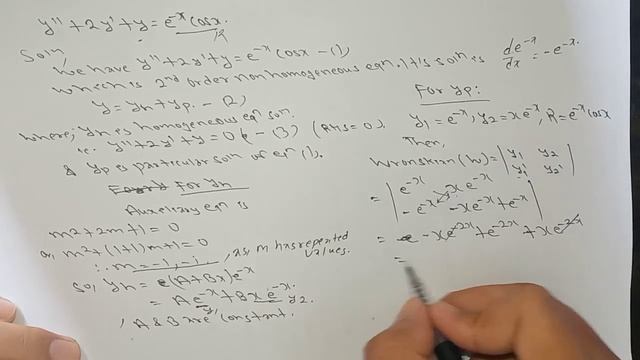 y'' + 2y' + y = e^-x cosx.
R
Soln,
We have y'' + 2y' + y = e^-x cosx - (1)
which is 2nd order nonhomogeneous eqn. It's soln is
y = yh + yp. - (2)
where, yh is homogeneous eqn son.
i.e. y'' + 2y' + y = 0 - (3) (RHS = 0).
& yp is particular soln of eqn (1).
For yh
Auxiliary eqn is
m² + 2m + 1 = 0
or, m² + (1+1)m + 1 = 0
∴ m = -1, -1. , as, m has repeated values.
so, yh = (A+Bx)e^-x
= A e^-x + B x e^-x.
y1 y2.
, A & B are constant.
de^-x/dx = -e^-x.
For yp:
y1 = e^-x, y2 = xe^-x, R = e^-x cosx
Then,
Wronskian (W) = | y1 y2 |
| y1' y2' |
= | e^-x xe^-x |
| -e^-x -xe^-x + e^-x |
= -xe^-2x + e^-2x + xe^-2x
=